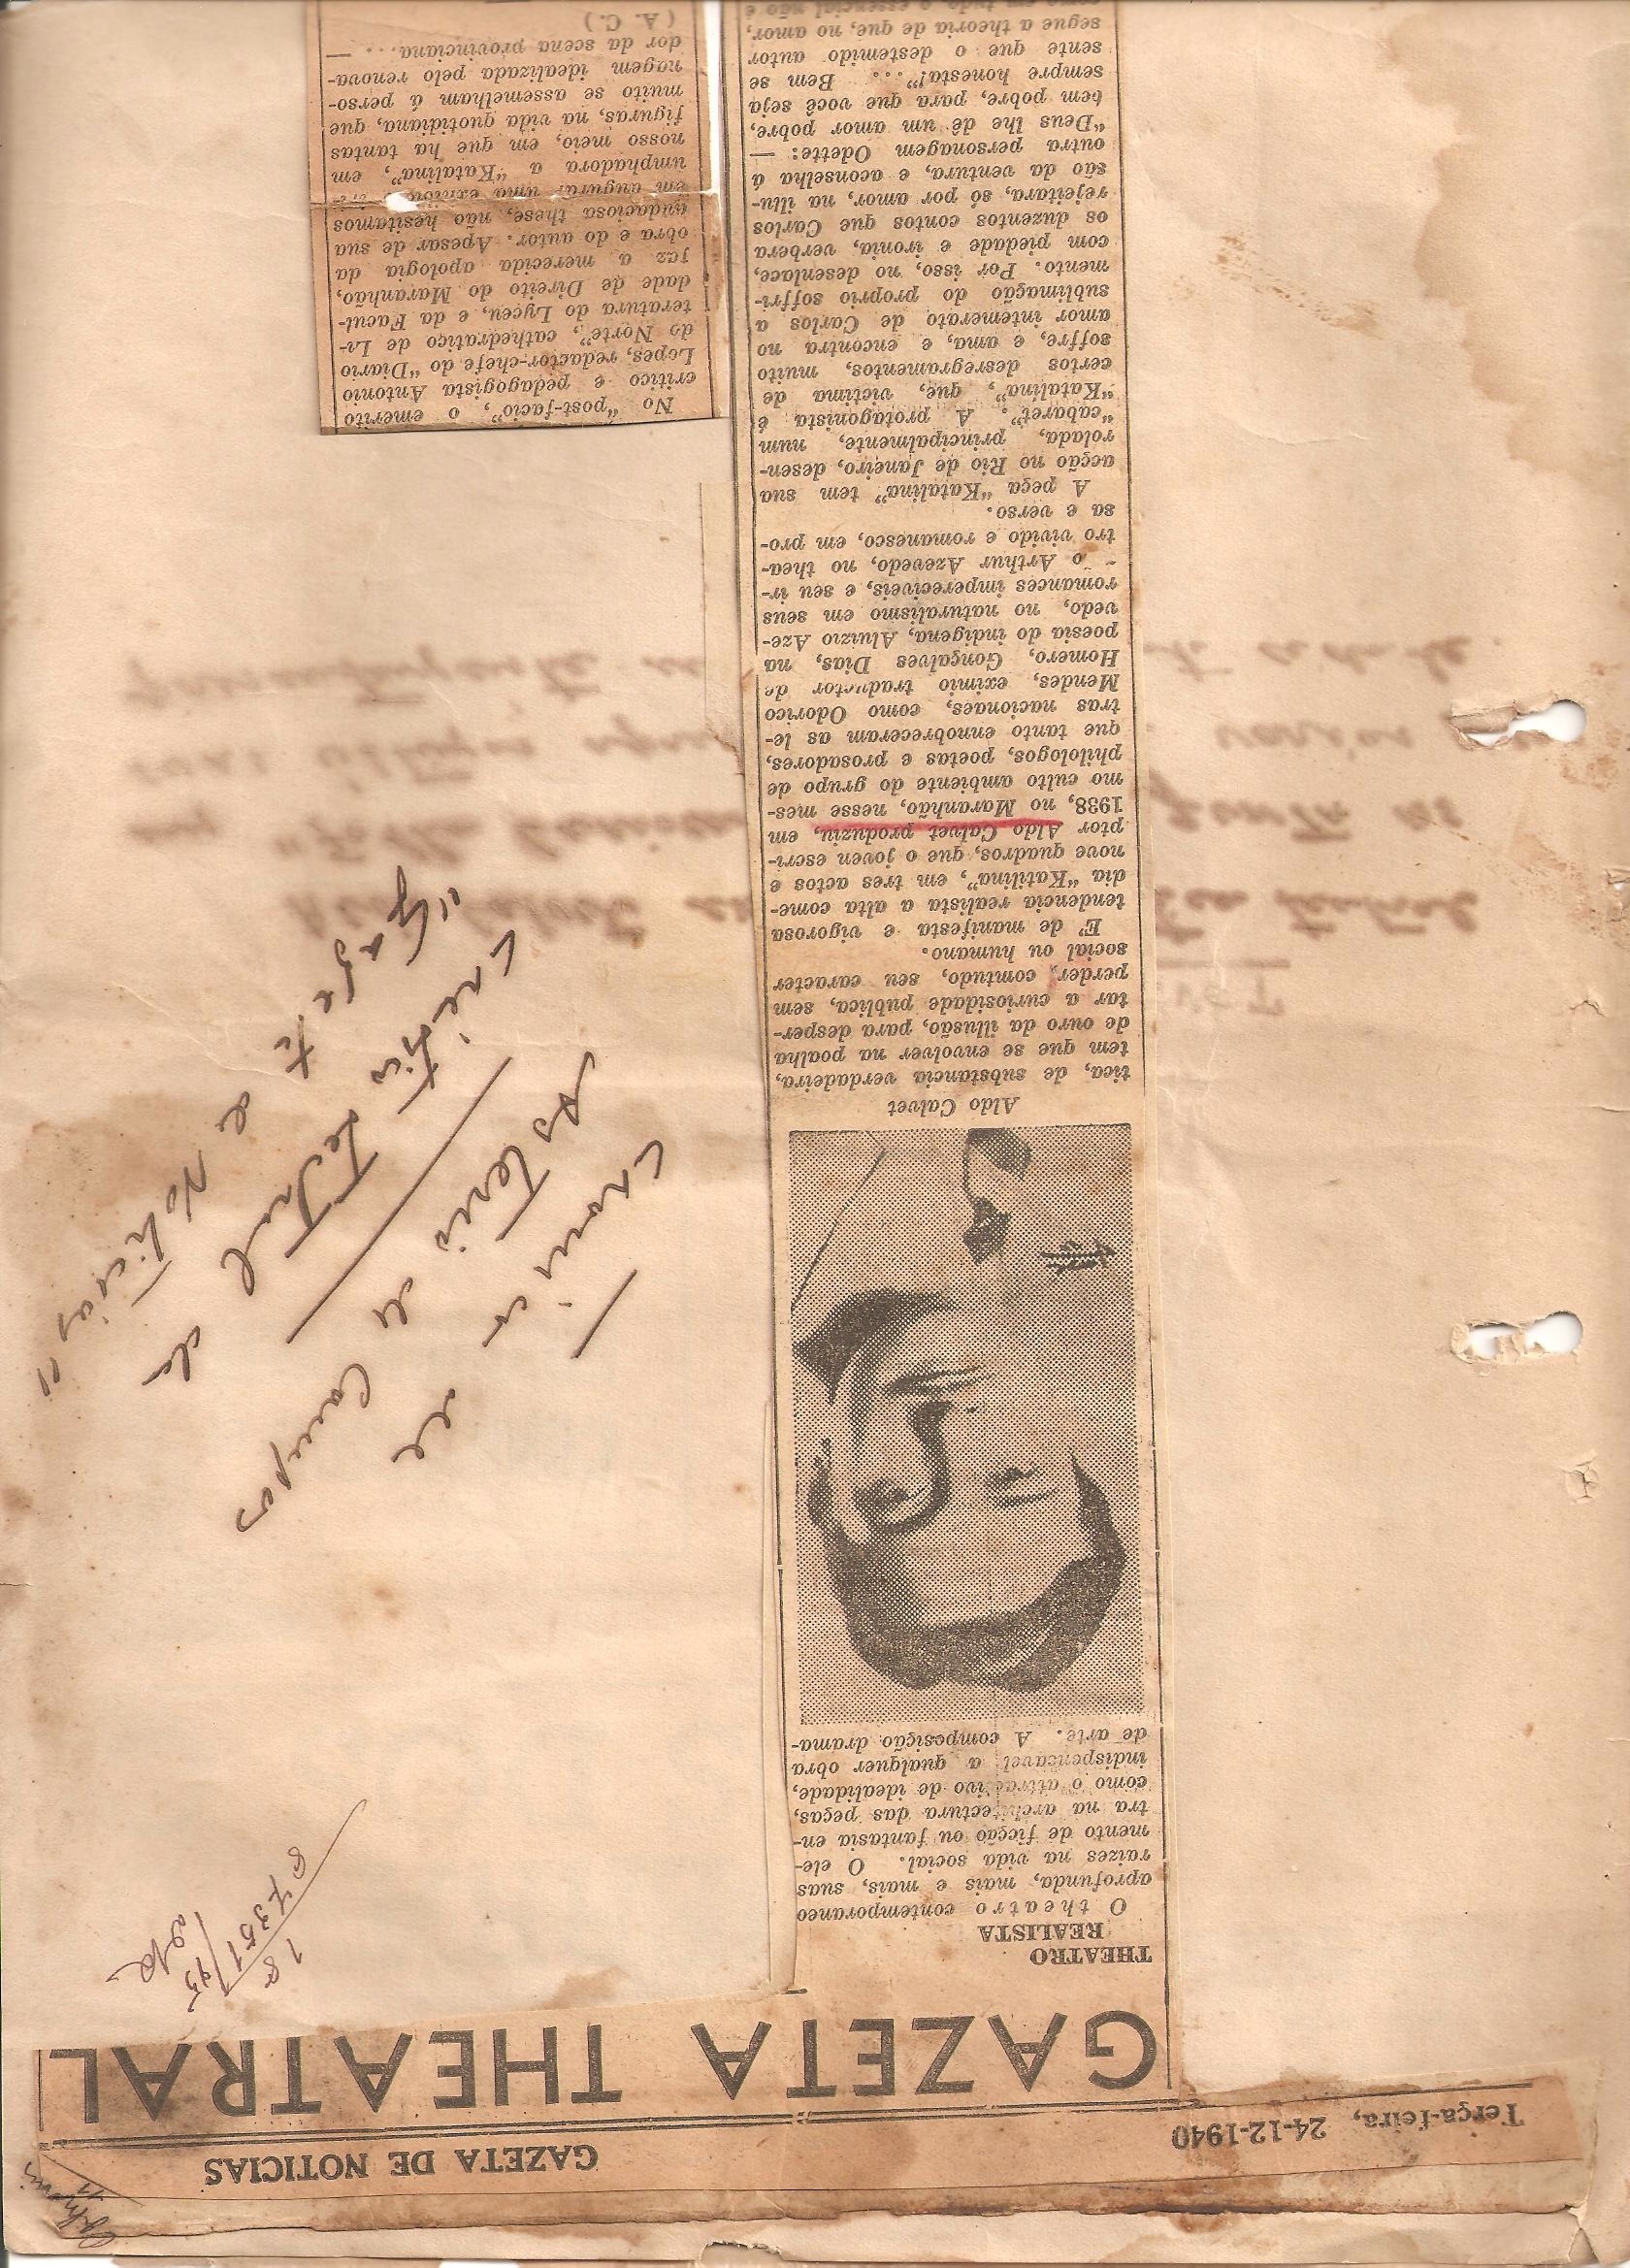 Terça-feira, 24-12-1940
GAZETA DE NOTICIAS
GAZETA THEATRAL
THEATRO
REALISTA
O theatro contemporaneo
aprofunda, mais e mais, suas
raizes na vida social. O ele-
mento de ficção ou fantasia en-
tra na architectura das peças,
como o attractivo de idealidade,
indispensavel a qualquer obra
de arte. A composição drama-
Aldo Calvet
tica, de substancia verdadeira,
tem que se envolver na poalha
de ouro da illusão, para desper-
tar a curiosidade publica, sem
perder, comtudo, seu caracter
social ou humano.
E' de manifesta e vigorosa
tendencia realista a alta come-
dia "Katilina", em tres actos e
nove quadros, que o joven escri-
ptor Aldo Calvet produziu, em
1938, no Maranhão, nesse mes-
mo culto ambiente do grupo de
philologos, poetas e prosadores,
que tanto ennobreceram as le-
tras nacionaes, como Odorico
Mendes, eximio traductor de
Homero, Gonçalves Dias, na
poesia do indigena, Aluizio Aze-
vedo, no naturalismo em seus
romances impereciveis, e seu ir-
o Arthur Azevedo, no thea-
tro vivido e romanesco, em pro-
sa e verso.
A peça "Katalina" tem sua
acção no Rio de Janeiro, desen-
rolada, principalmente, num
"cabaret". A protagonista é
"Katalina", que, victima de
certos desregramentos, muito
soffre, e ama, e encontra no
amor intemerato de Carlos a
sublimação do proprio soffri-
mento. Por isso, no desenlace,
com piedade e ironia, verbera
os duzentos contos que Carlos
rejeitara, só por amor, na illu-
são da ventura, e aconselha á
outra personagem Odette: —
"Deus lhe dê um amor pobre,
bem pobre, para que você seja
sempre honesta!"... Bem se
sente que o destemido autor
segue a theoria de que, no amor,
como em tudo o essencial não é
No "post-facio", o emerito
critico e pedagogista Antonio
Lopes, redactor-chefe do "Diario
do Norte", cathedratico de Li-
teratura do Lyceu, e da Facul-
dade de Direito do Maranhão,
faz a merecida apologia da
obra e do autor. Apesar de sua
audaciosa these, não hesitamos
em augurar uma exhibição tri-
umphadora a "Katalina", em
nosso meio, em que ha tantas
figuras, na vida quotidiana, que
muito se assemelham á perso-
nagem idealizada pelo renova-
dor da scena provinciana... —
(A. C.)
Cronica de
Asterio de Campos
critico teatral da
"Gazeta de Noticias"